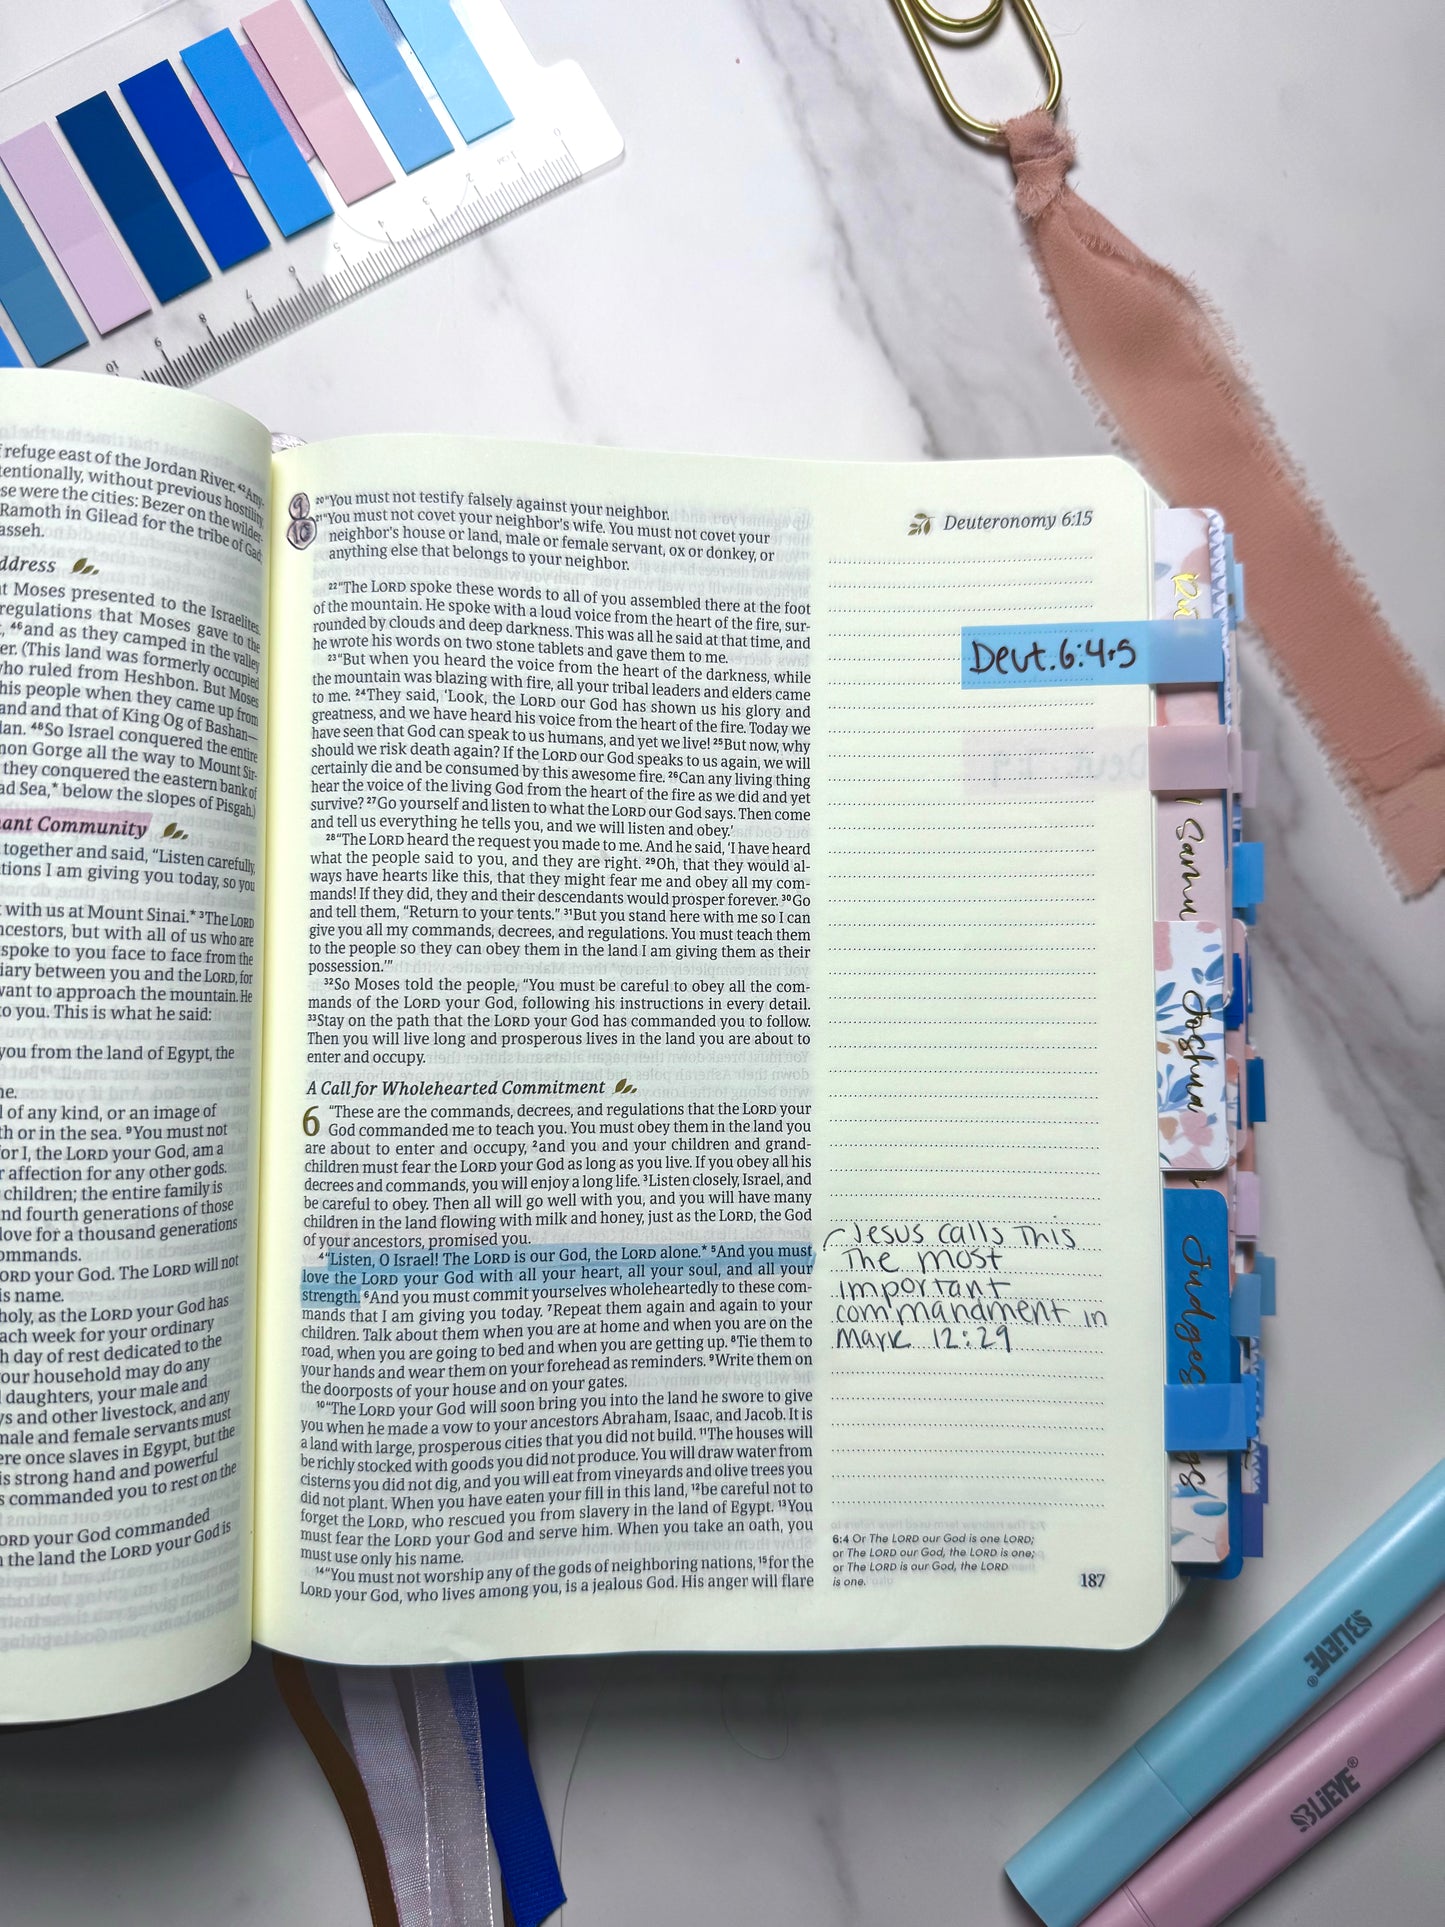 0
1 CM
2
3
4
5
6
7
8
9
10
refuge east of the Jordan River. 42Any-
tentionally, without previous hostility,
se were the cities: Bezer on the wilder-
Ramoth in Gilead for the tribe of Gad;
asseh.
ddress
t Moses presented to the Israelites.
regulations that Moses gave to the
, 46and as they camped in the valley
er. (This land was formerly occupied
who ruled from Heshbon. But Moses
his people when they came up from
and and that of King Og of Bashan—
lan. 48So Israel conquered the entire
non Gorge all the way to Mount Sir-
they conquered the eastern bank of
ad Sea,* below the slopes of Pisgah.)
ant Community
together and said, “Listen carefully,
tions I am giving you today, so you
with us at Mount Sinai.* 3The LORD
ncestors, but with all of us who are
spoke to you face to face from the
iary between you and the LORD, for
want to approach the mountain. He
to you. This is what he said:
you from the land of Egypt, the
ne.
l of any kind, or an image of
th or in the sea. 9You must not
for I, the LORD your God, am a
r affection for any other gods.
children; the entire family is
nd fourth generations of those
love for a thousand generations
ommands.
ORD your God. The LORD will not
is name.
holy, as the LORD your God has
ach week for your ordinary
h day of rest dedicated to the
our household may do any
daughters, your male and
ys and other livestock, and any
male and female servants must
ere once slaves in Egypt, but the
is strong hand and powerful
s commanded you to rest on the
ORD your God commanded
n the land the LORD your God is
9
10
20“You must not testify falsely against your neighbor.
21“You must not covet your neighbor’s wife. You must not covet your
neighbor’s house or land, male or female servant, ox or donkey, or
anything else that belongs to your neighbor.
22“The LORD spoke these words to all of you assembled there at the foot
of the mountain. He spoke with a loud voice from the heart of the fire, sur-
rounded by clouds and deep darkness. This was all he said at that time, and
he wrote his words on two stone tablets and gave them to me.
23“But when you heard the voice from the heart of the darkness, while
the mountain was blazing with fire, all your tribal leaders and elders came
to me. 24They said, ‘Look, the LORD our God has shown us his glory and
greatness, and we have heard his voice from the heart of the fire. Today we
have seen that God can speak to us humans, and yet we live! 25But now, why
should we risk death again? If the LORD our God speaks to us again, we will
certainly die and be consumed by this awesome fire. 26Can any living thing
hear the voice of the living God from the heart of the fire as we did and yet
survive? 27Go yourself and listen to what the LORD our God says. Then come
and tell us everything he tells you, and we will listen and obey.’
28“The LORD heard the request you made to me. And he said, ‘I have heard
what the people said to you, and they are right. 29Oh, that they would al-
ways have hearts like this, that they might fear me and obey all my com-
mands! If they did, they and their descendants would prosper forever. 30Go
and tell them, “Return to your tents.” 31But you stand here with me so I can
give you all my commands, decrees, and regulations. You must teach them
to the people so they can obey them in the land I am giving them as their
possession.’”
32So Moses told the people, “You must be careful to obey all the com-
mands of the LORD your God, following his instructions in every detail.
33Stay on the path that the LORD your God has commanded you to follow.
Then you will live long and prosperous lives in the land you are about to
enter and occupy.
A Call for Wholehearted Commitment
6 “These are the commands, decrees, and regulations that the LORD your
God commanded me to teach you. You must obey them in the land you
are about to enter and occupy, 2and you and your children and grand-
children must fear the LORD your God as long as you live. If you obey all his
decrees and commands, you will enjoy a long life. 3Listen closely, Israel, and
be careful to obey. Then all will go well with you, and you will have many
children in the land flowing with milk and honey, just as the LORD, the God
of your ancestors, promised you.
4“Listen, O Israel! The LORD is our God, the LORD alone.* 5And you must
love the LORD your God with all your heart, all your soul, and all your
strength. 6And you must commit yourselves wholeheartedly to these com-
mands that I am giving you today. 7Repeat them again and again to your
children. Talk about them when you are at home and when you are on the
road, when you are going to bed and when you are getting up. 8Tie them to
your hands and wear them on your forehead as reminders. 9Write them on
the doorposts of your house and on your gates.
10“The LORD your God will soon bring you into the land he swore to give
you when he made a vow to your ancestors Abraham, Isaac, and Jacob. It is
a land with large, prosperous cities that you did not build. 11The houses will
be richly stocked with goods you did not produce. You will draw water from
cisterns you did not dig, and you will eat from vineyards and olive trees you
did not plant. When you have eaten your fill in this land, 12be careful not to
forget the LORD, who rescued you from slavery in the land of Egypt. 13You
must fear the LORD your God and serve him. When you take an oath, you
must use only his name.
14“You must not worship any of the gods of neighboring nations, 15for the
LORD your God, who lives among you, is a jealous God. His anger will flare
Deuteronomy 6:15
Deut. 6:4+5
Jesus calls this
the most
important
commandment in
Mark 12:29
6:4 Or The LORD our God is one LORD;
or The LORD our God, the LORD is one;
or The LORD is our God, the LORD
is one.
187
1 Samu
Joshua
Judges
BLiEVE®
BLiEVE®